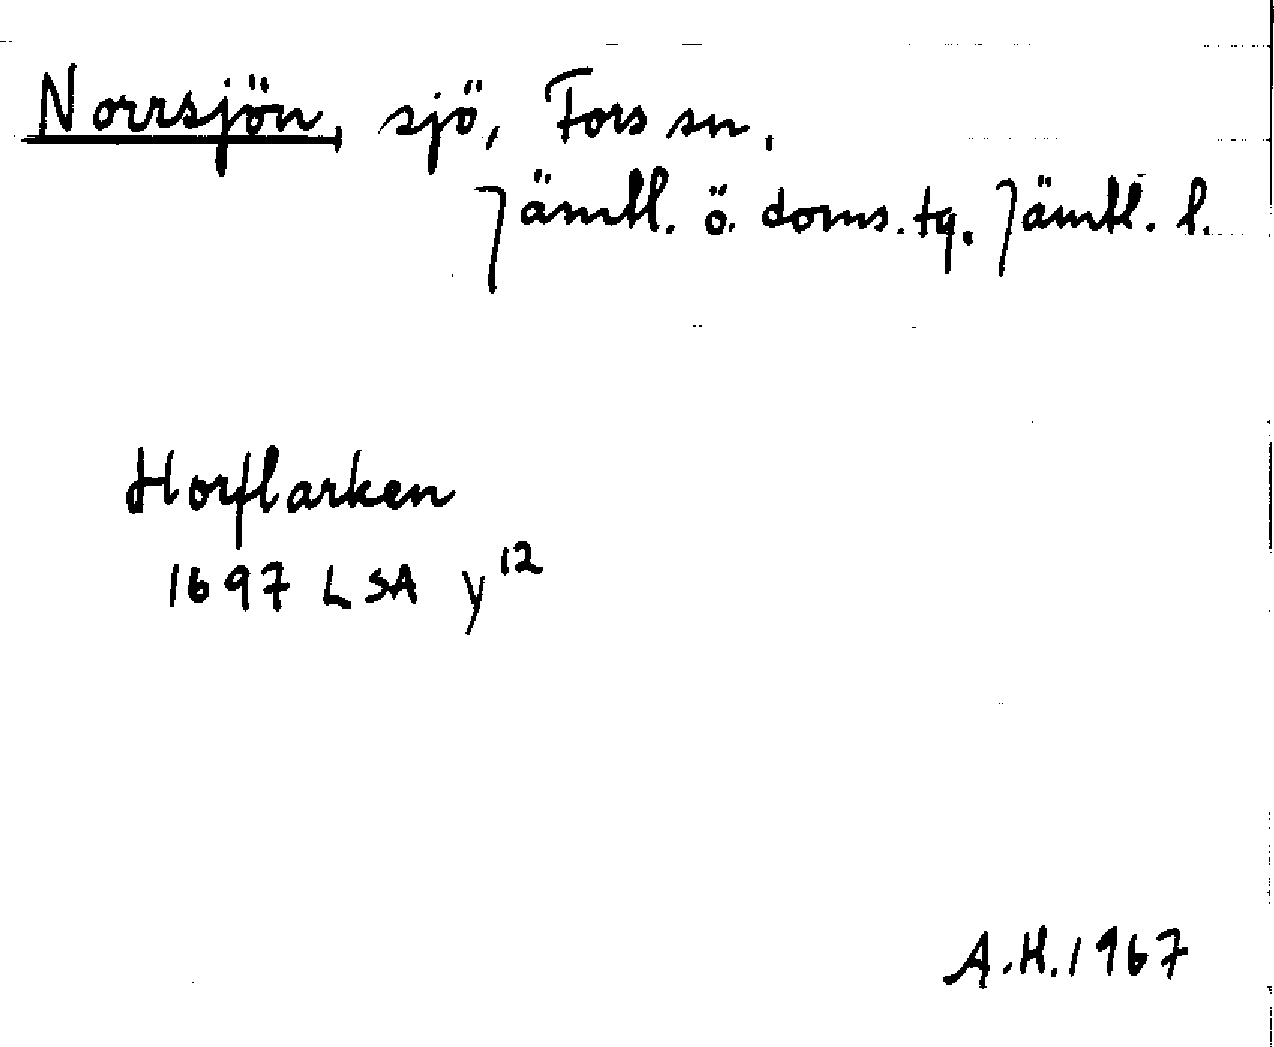 Norrsjön, sjö, Fors sn,
Jämtl. ö. doms. tg. Jämtl. l.
Horflarken
1697 LSA y¹²
A.H. 1967